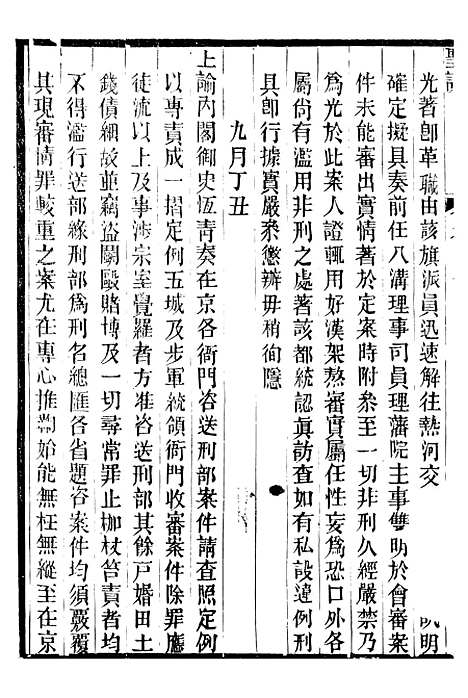 光著卽革職由該旗派員迅速解往熱河交
明
確定擬具奏前任八溝理事司員理藩院主事雙明於會審案
件未能審出實情著於定案時附叅至一切非刑久經嚴禁乃
爲光於此案人證輒用好漢架熬審實屬任性妄爲恐口外各
屬尙有濫用非刑之處著該都統認眞訪查如有私設違例刑
具卽行據實嚴叅懲辦毋稍徇隱
九月丁丑
上諭內閣御史恆青奏在京各衙門咨送刑部案件請查照定例
以專責成一摺定例五城及步軍統領衙門收審案件除罪應
徒流以上及事涉宗室覺羅者方准咨送刑部其餘戸婚田土
錢債細故並竊盜鬬毆賭博及一切尋常罪止枷杖笞責者均
不得濫行送部緣刑部爲刑名總匯各省題咨案件均須覈覆
其現審情罪較重之案尤在專心推鞫始能無枉無縱至在京